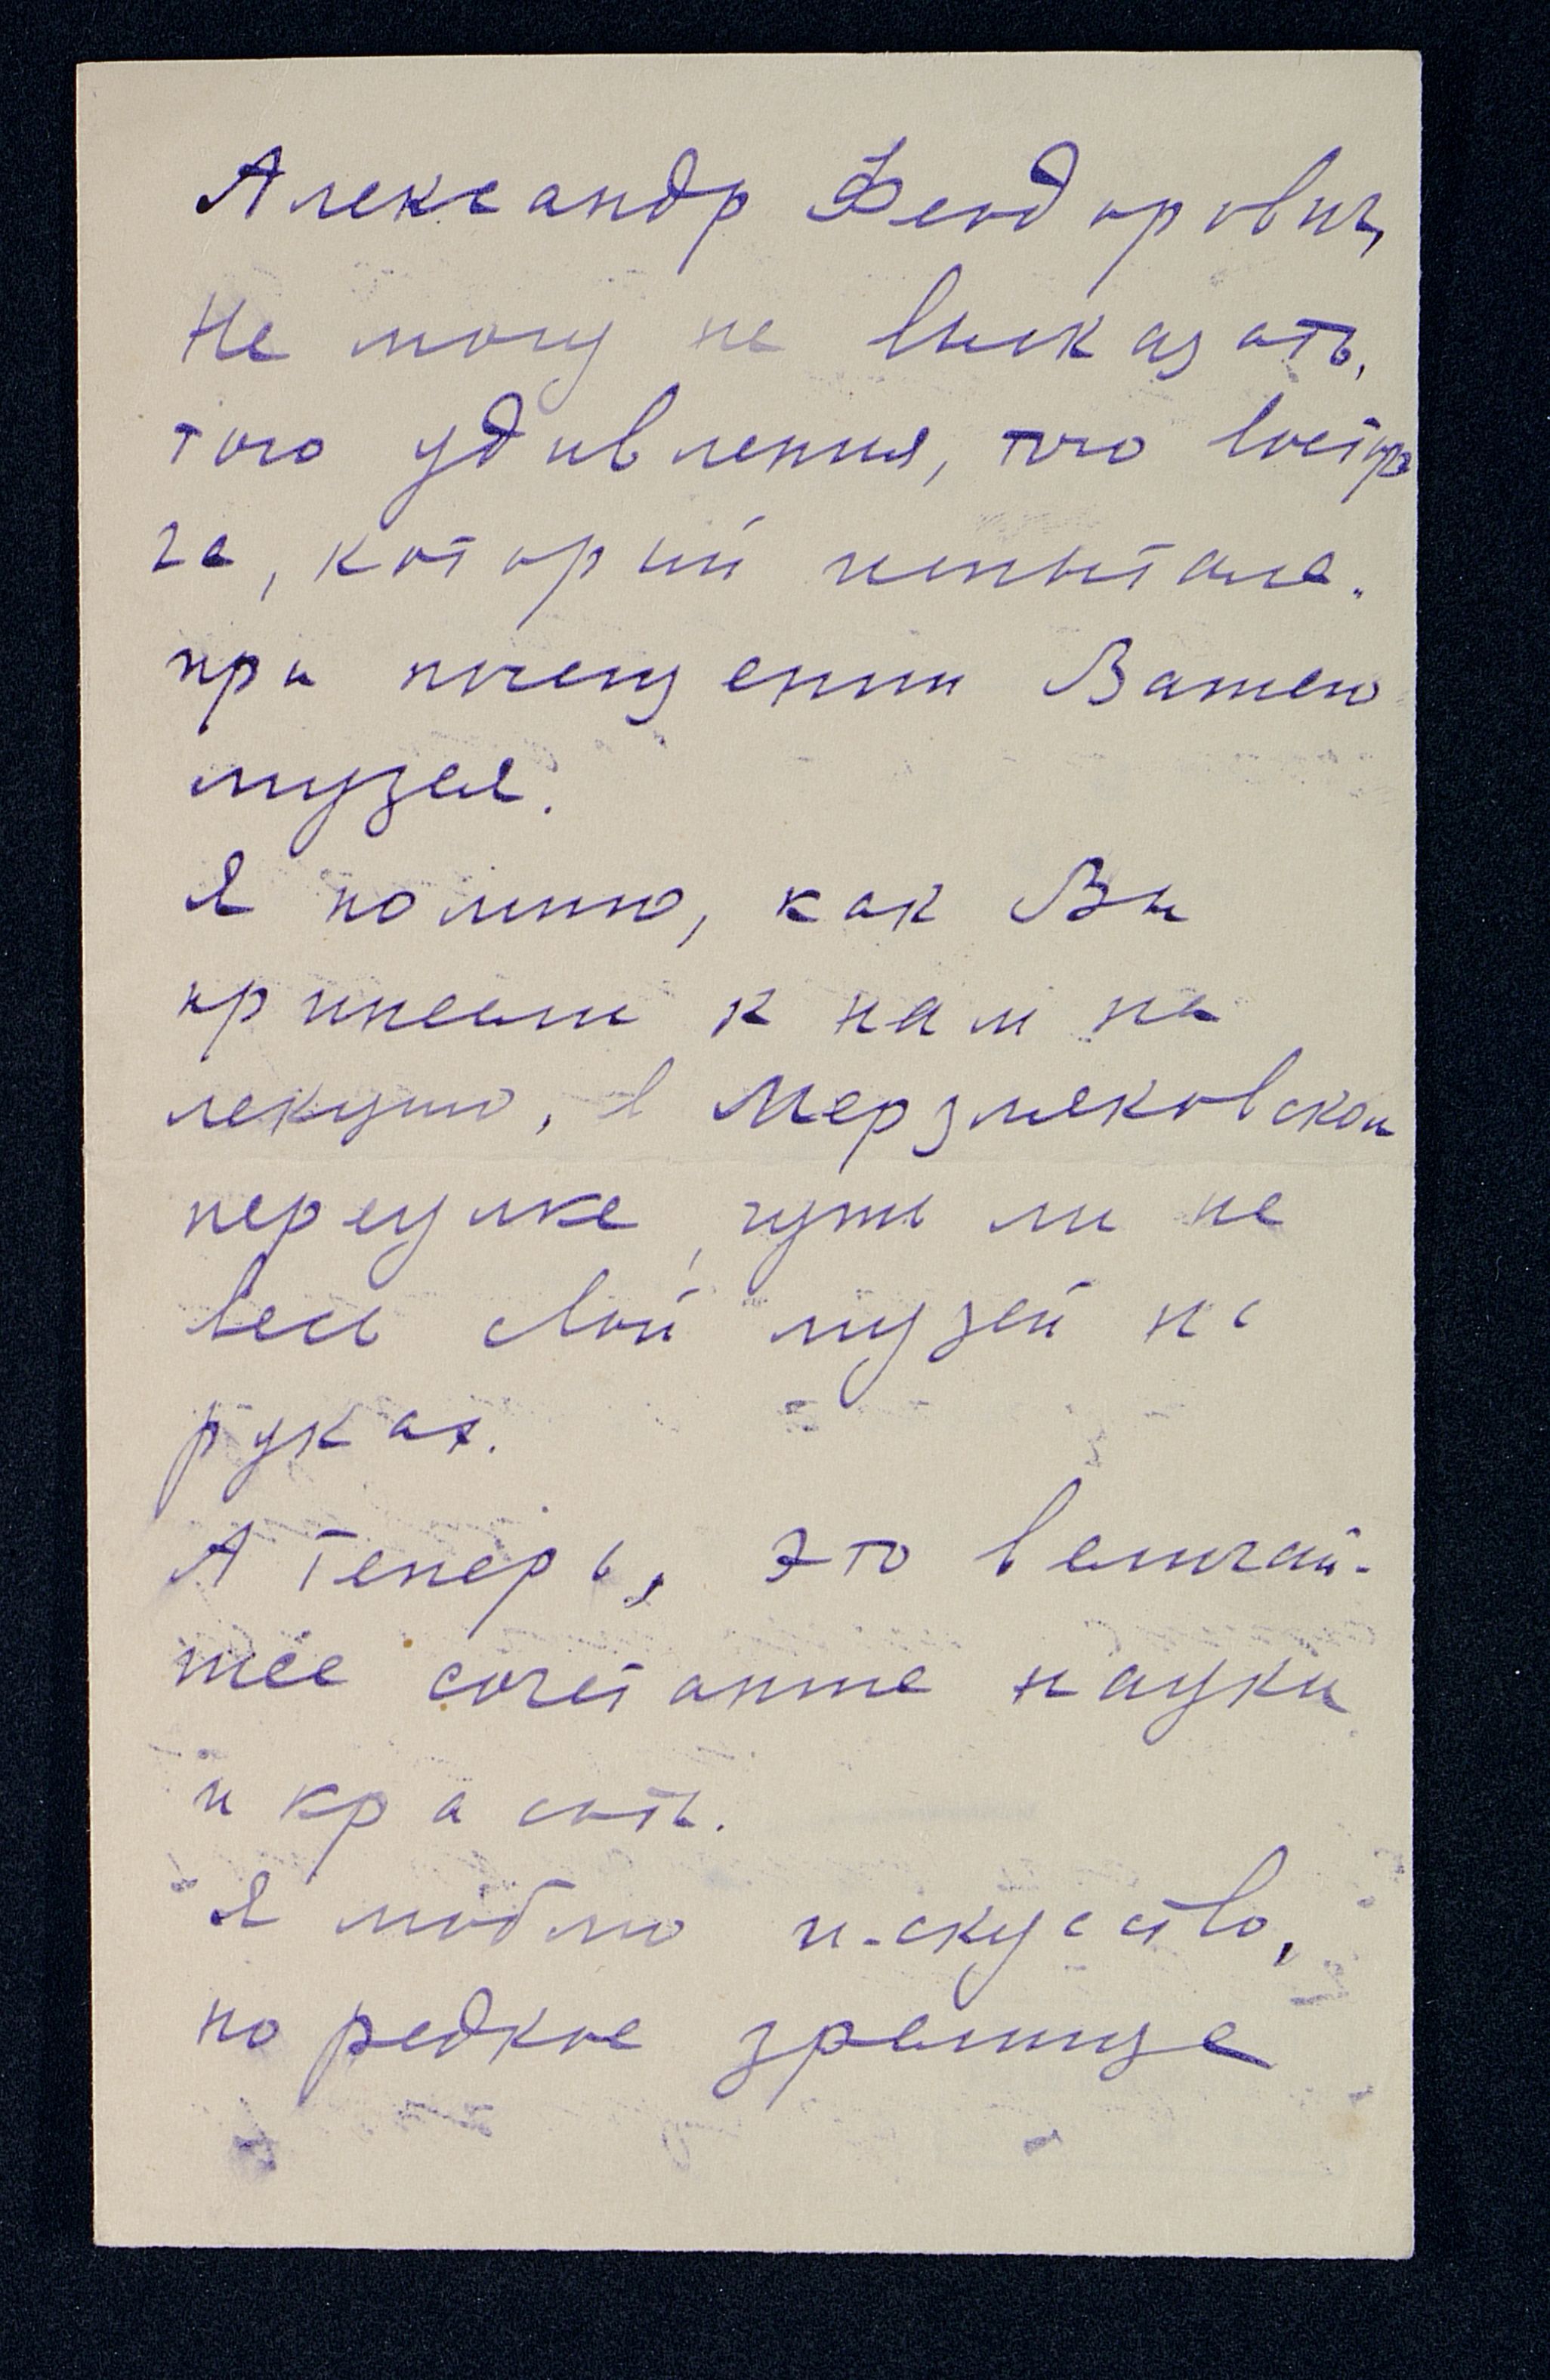 Александр Феодорович,
Не могу не высказать,
того удивления, того востор
га, который испытала.
при посещении Вашего
музея.
Я помню, как Вы
принесли к нам на
лекцию, в Мерзляковском
переулке, чуть ли не
весь свой музей на
руках.
А теперь, это величай-
шее сочетание науки
и красоты.
Я люблю искусство,
но редкое зрелище